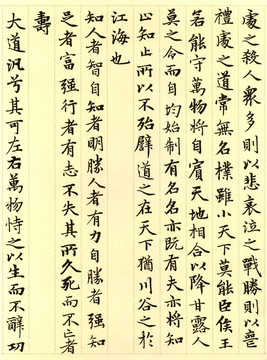 處之殺人衆多則以悲哀泣之戰勝則以喪
禮處之道常無名樸雖小天下莫能臣侯王
若能守萬物將自賓天地相合以降甘露人
莫之令而自均始制有名名亦既有夫亦將知
止知止所以不殆譬道之在天下猶川谷之於
江海也
知人者智自知者明勝人者有力自勝者强知
足者富强行者有志不失其所久死而不亡者
壽
大道汎兮其可左右萬物恃之以生而不辭功